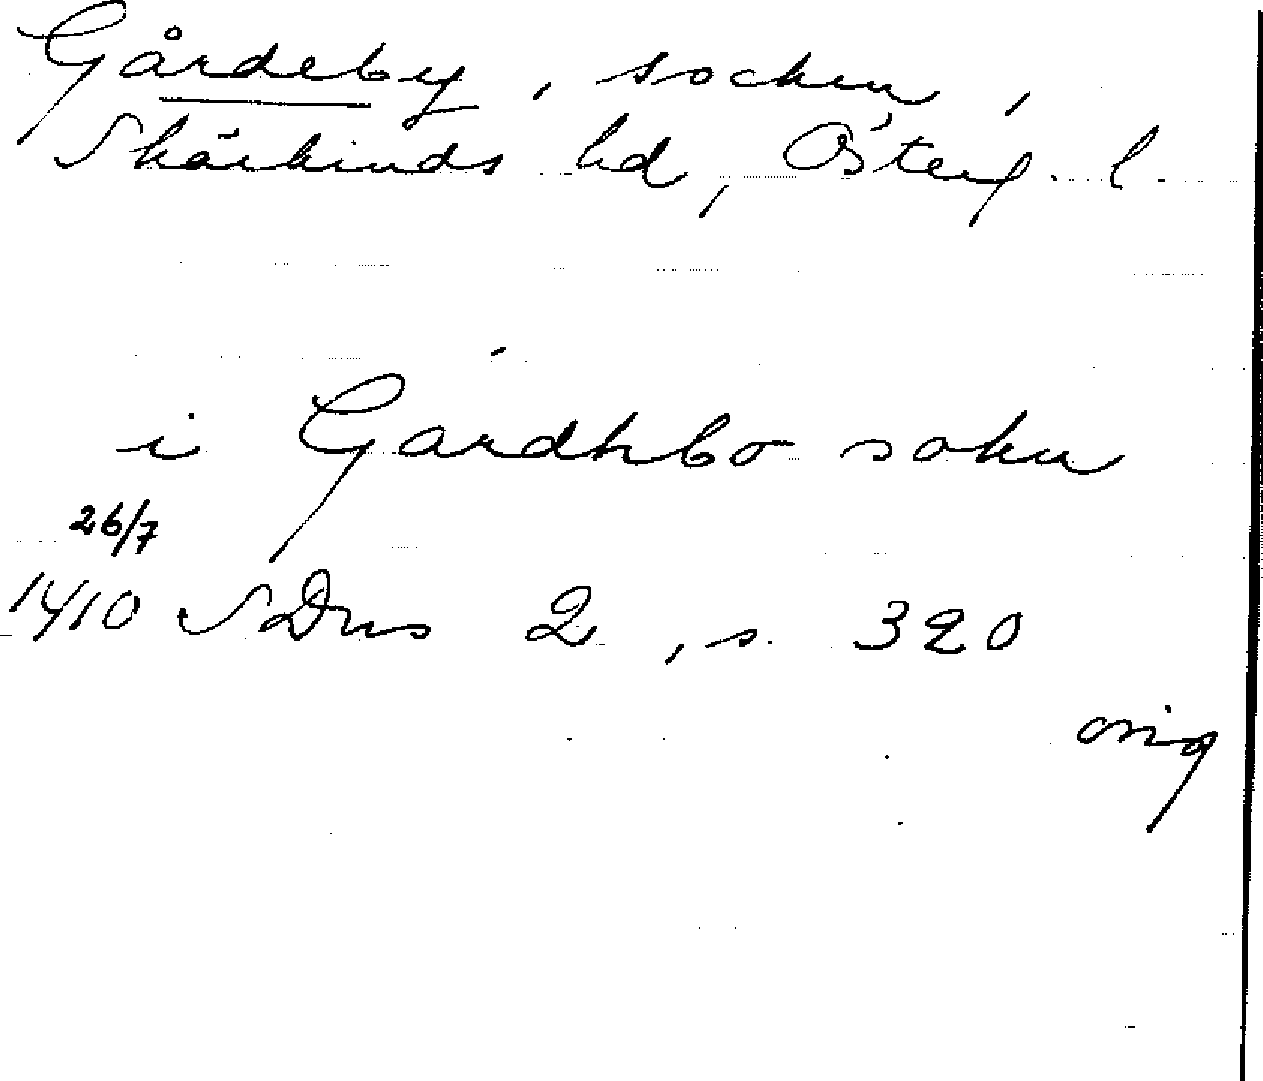 Gårdeby, socken,
Skärkinds hd, Österg. l.
i Gardhbo sokn
26/7
1410 SDns 2, s. 320
orig